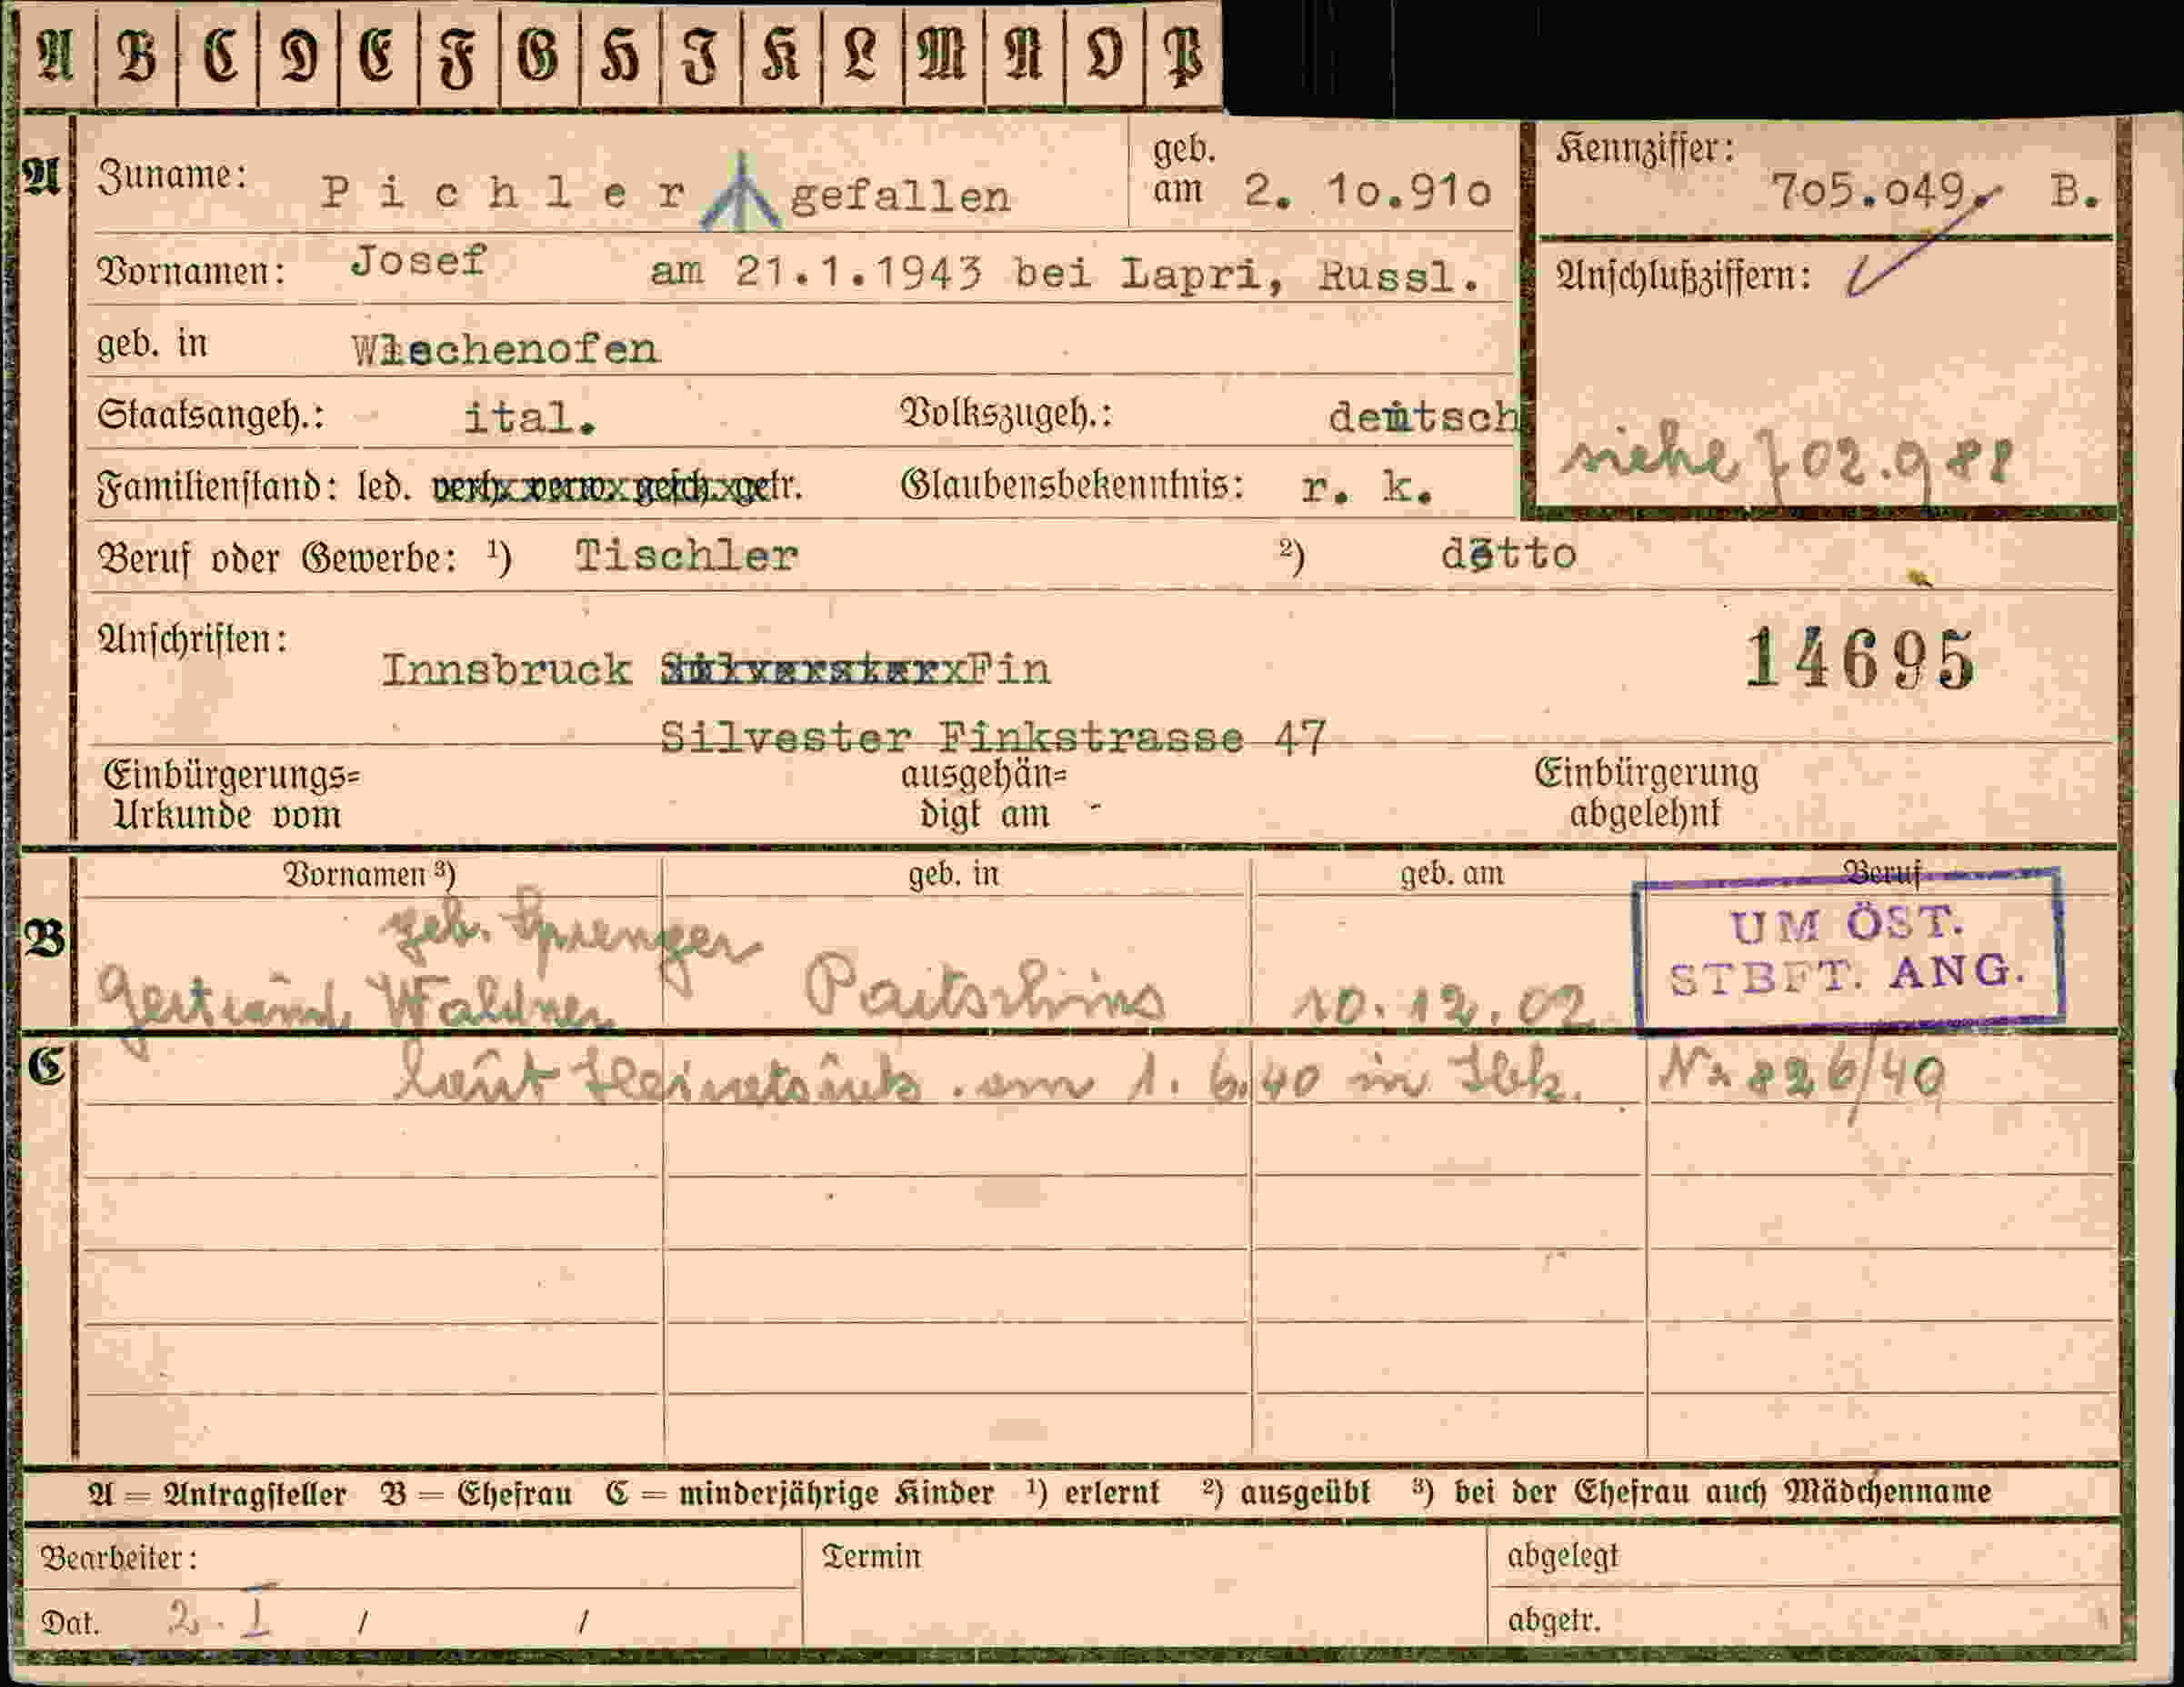 A B C D E F G H I K L M N O P
A Zuname: Pichler gefallen geb. am 2. 10.910 Kennziffer: 705.049, B.
Vornamen: Josef am 21.1.1943 bei Lapri, Russl. Anschlußziffern:
geb. in
Staatsangeh.: ital. Volkszugeh.: deutsch
siehe 702.988
Familienstand: led. verh. verw. gesch. getr. Glaubensbekenntnis: r. k.
Beruf oder Gewerbe: 1) Tischler 2) detto
Anschriften: 14695
Innsbruck Fin
Silvester Finkstrasse 47
Einbürgerungs= Urkunde vom ausgehän= digt am Einbürgerung abgelehnt
Vornamen 3) geb. in geb. am Beruf
B geb. Sprenger UM ÖST.
STBFT. ANG.
Gertraud Waldner Partschins 10. 12. 02
C laut am 1. 6. 40 in Ibk. Nr 826/40
A = Antragsteller B = Ehefrau C = minderjährige Kinder 1) erlernt 2) ausgeübt 3) bei der Ehefrau auch Mädchenname
Bearbeiter: Termin abgelegt
Dat. 2. I / / abgetr.